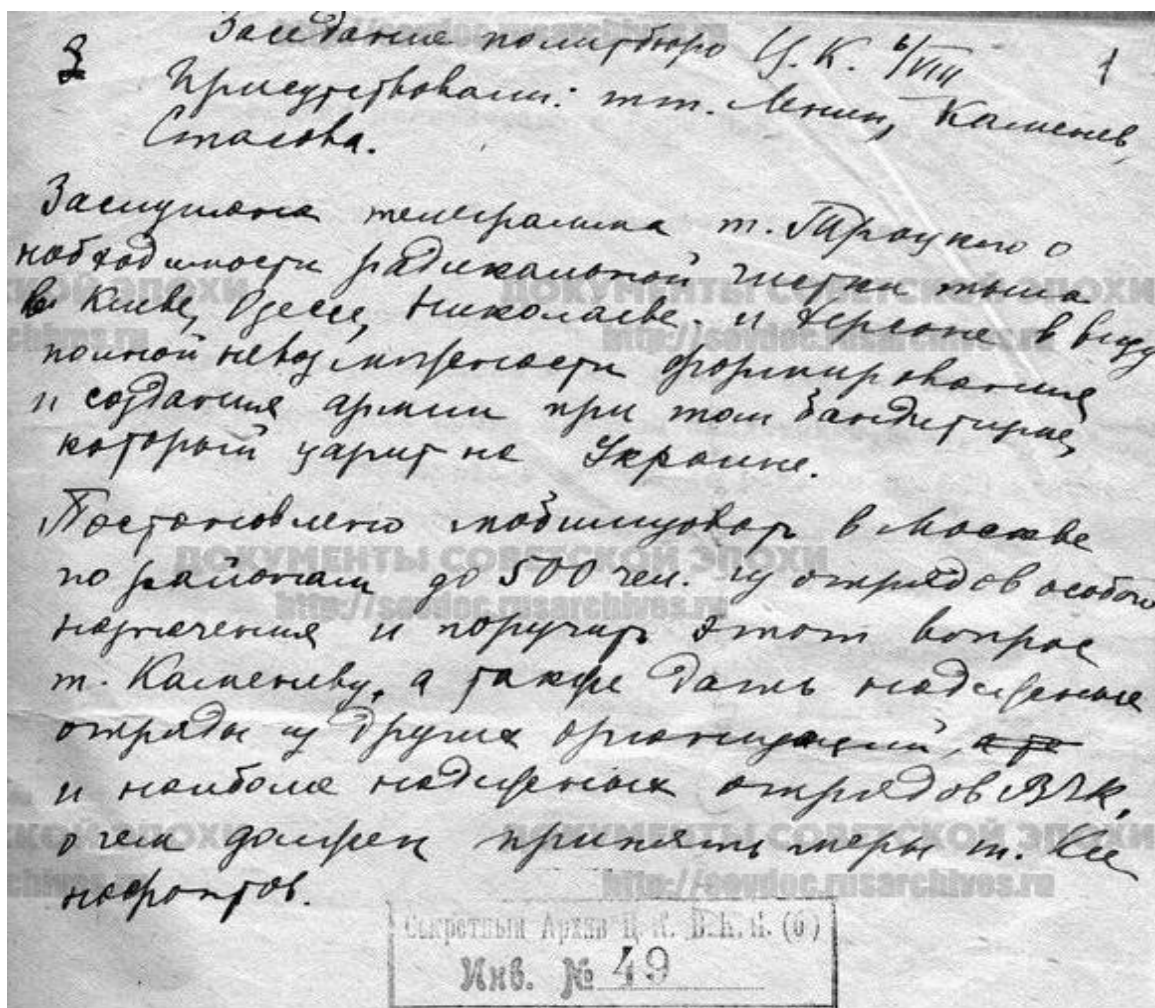 3 Заседание политбюро Ц.К. 6/VIII 1
Присутствовали: т.т. Ленин, Каменев,
Стасова.
Заслушана телеграмма т. Троцкого о
необходимости радикальной чистки тыла
в Киеве, Одессе, Николаеве, и Херсоне в виду
полной невозможности формирования
и создания армии при том бандитизме,
который царит на Украине.
Постановлено мобилизовать в Москве
по районам до 500 чел. из отрядов особого
назначения и поручить этот вопрос
т. Каменеву, а также дать надежные
отряды из других организаций,
и наиболее надежных отрядов ВЧК,
о чем должен принять меры т. Ксе
нофонтов.
ДОКУМЕНТЫ СОВЕТСКОЙ ЭПОХИ
http://sovdoc.rusarchives.ru
Секретный Архив Ц.К. В.К.П.(б)
Инв. № 49